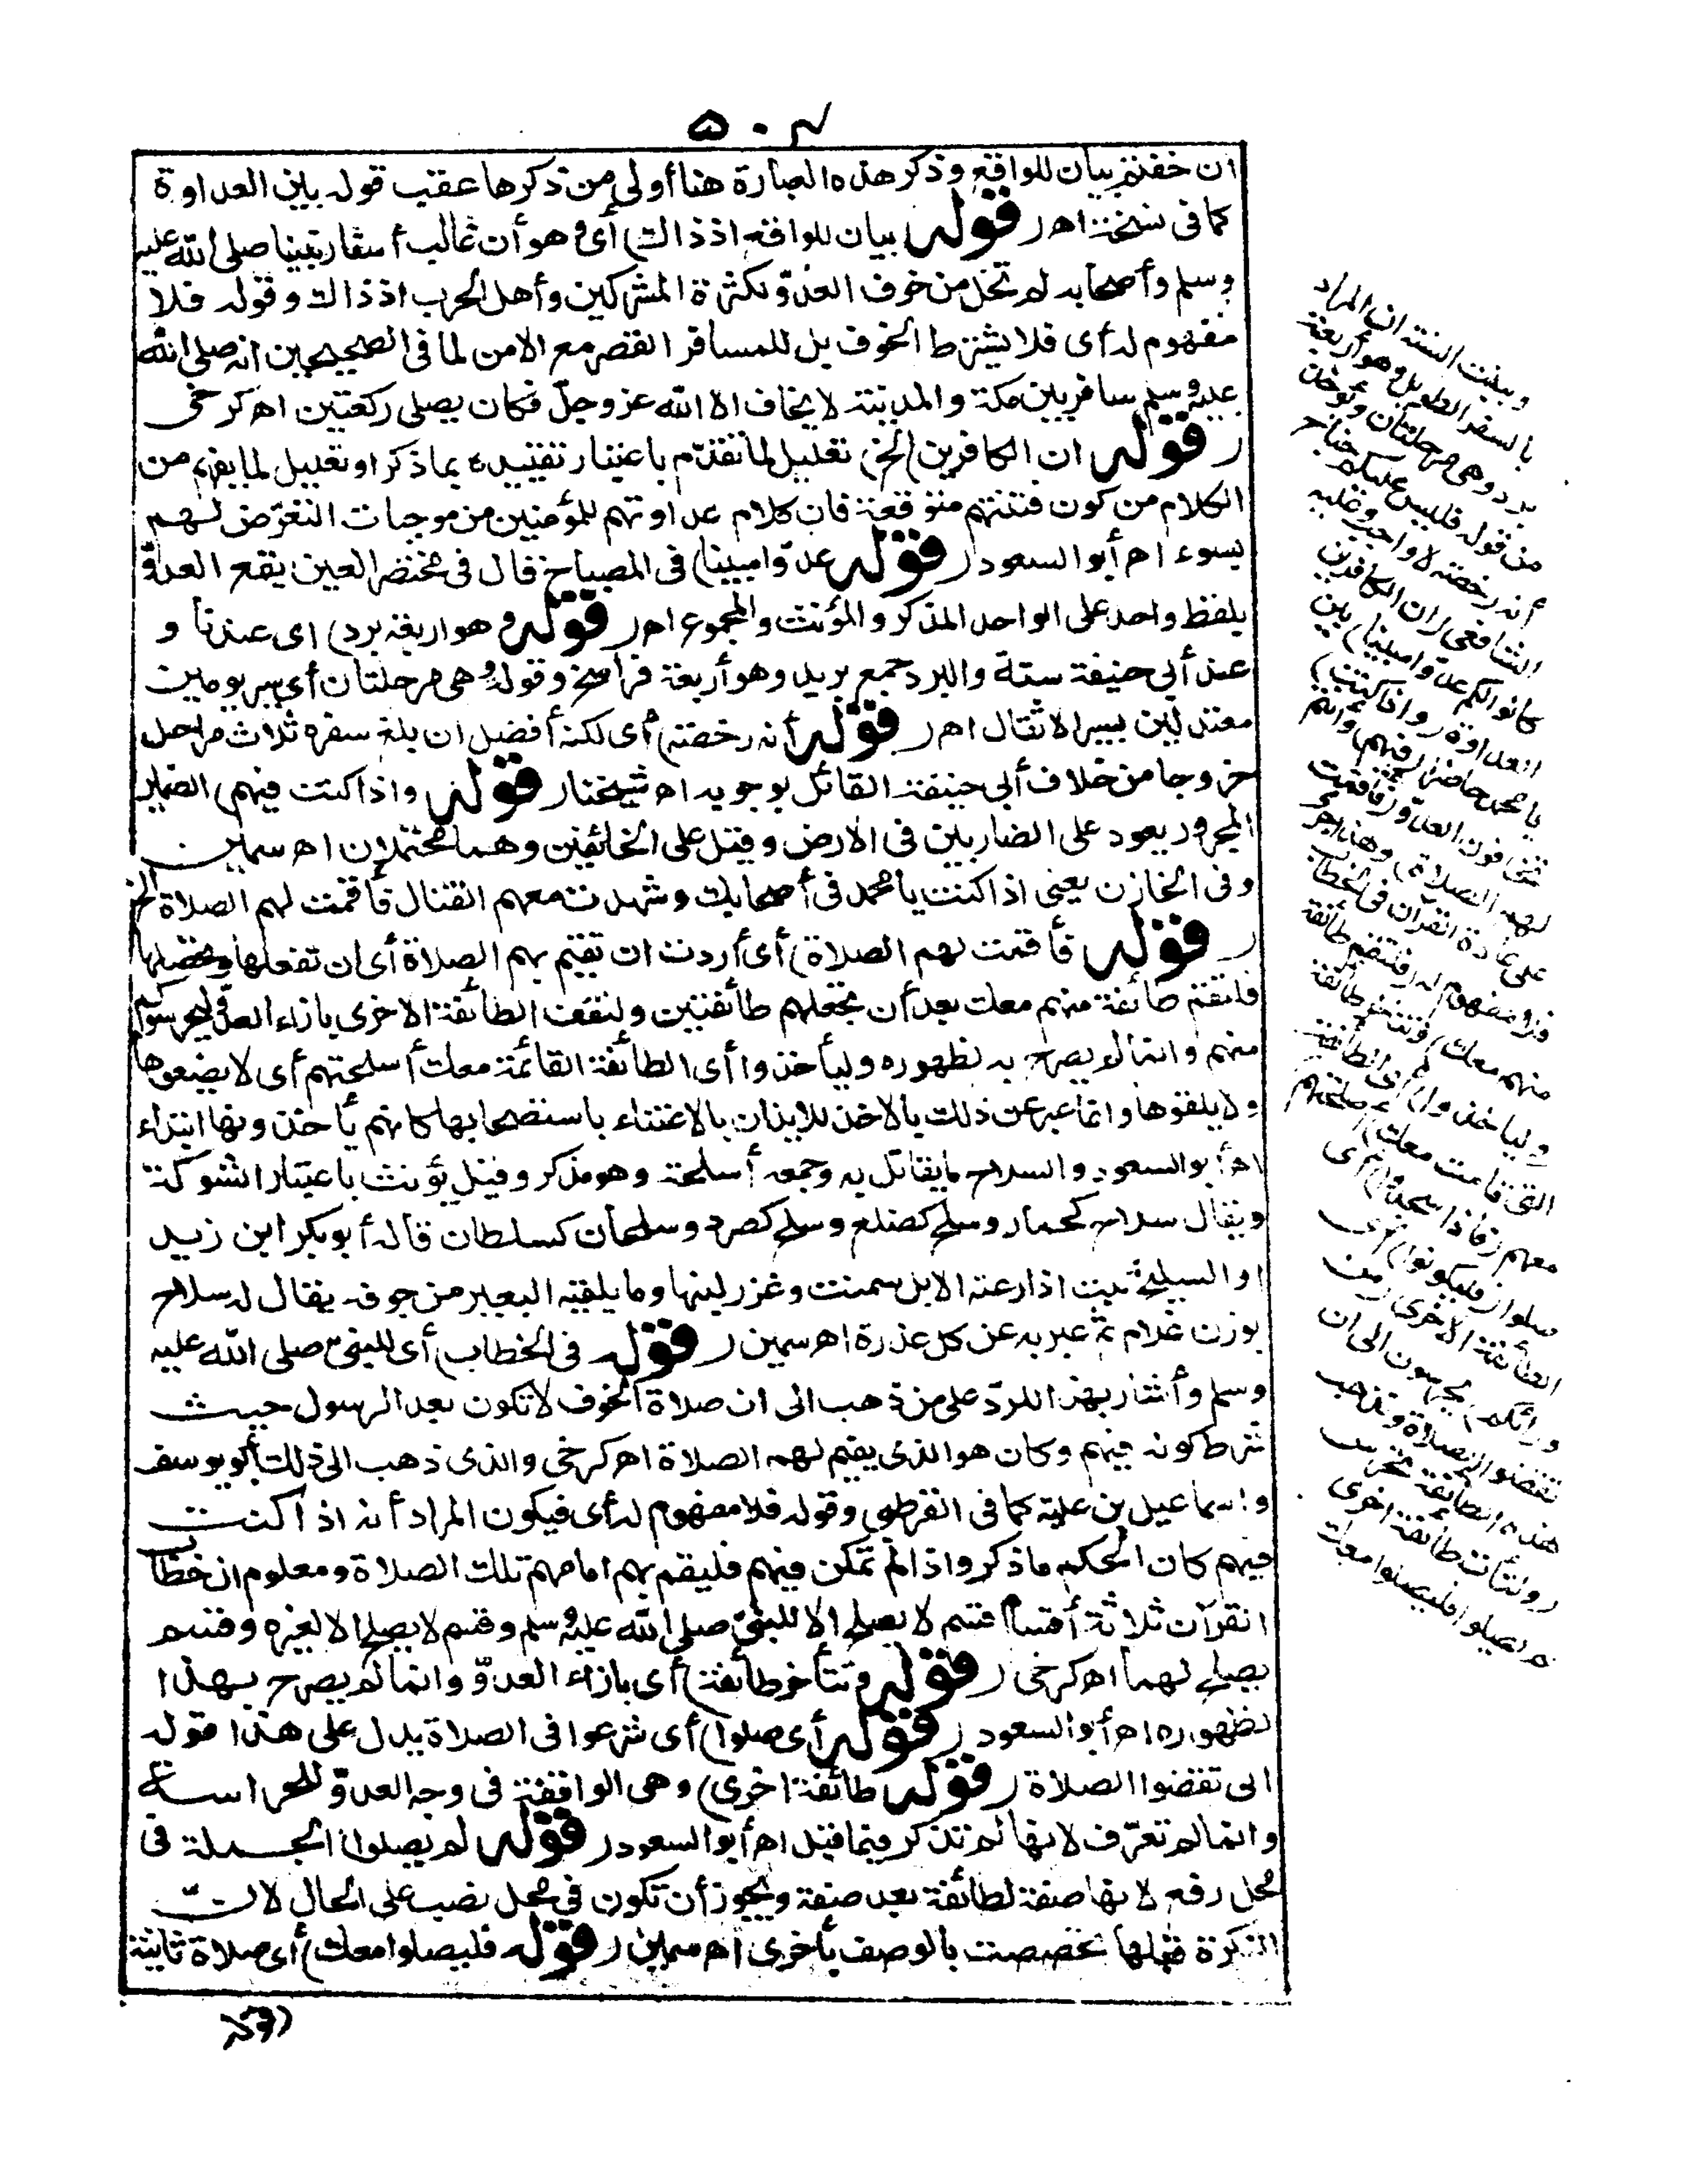 ٥٠٤
ان خفتم بيان للواقع وذكر هذه العبارة هنا أولى من ذكرها عقب قوله بين العداوة
كما فى نسخة اهـ (قوله بيان للواقع اذ ذاك) أى وهو أن غالب أسفار نبينا صلى الله عليه
وسلم وأصحابه لم تخل من خوف العدوّ لكثرة المشركين وأهل الحرب اذ ذاك وقوله فلا
مفهوم له أى فلا يشترط الخوف بل للمسافر القصر مع الامن لما فى الصحيحين انه صلى الله
عليه وسلم سافر بين مكة والمدينة لا يخاف الا الله عز وجلّ فكان يصلى ركعتين اهـ كرخى
(قوله ان الكافرين الخ) تعليل لما تقدّم باعتبار تقييده بما ذكر او تعليل لما يفهم من
الكلام من كون فتنتهم متوقعة فان كلام عداوتهم للمؤمنين من موجبات التعرّض لهم
بسوء اهـ أبو السعود (قوله عدوّا مبينا) فى المصباح قال فى مختصر العين يقع العدوّ
بلفظ واحد على الواحد المذكر والمؤنث والمجموع اهـ (قوله وهو اربعة برد) اى عندنا و
عند أبى حنيفة ستة والبرد جمع بريد وهو أربعة فراسخ وقوله وهى مرحلتان أى سير يومين
معتدلين بسير الاثقال اهـ (قوله أنه رخصة) أى لكنه أفضل ان بلغ سفره ثلاث مراحل
خروجا من خلاف أبى حنيفة القائل بوجوبه اهـ شيخنا (قوله واذا كنت فيهم) الضمير
المجرور يعود على الضاربين فى الارض وقيل على الخائفين وهما محتملان اهـ سمين
وفى الخازن يعنى اذا كنت يا محمد فى أصحابك وشهدت معهم القتال فأقمت لهم الصلاة الخ
(قوله فأقمت لهم الصلاة) أى أردت ان تقيم بهم الصلاة أى ان تفعلها وتحصلها
فلتقم طائفة منهم معك بعد أن تجعلهم طائفتين ولتقف الطائفة الاخرى بازاء العدوّ ليحرسوكم
منهم وانما لم يصرح به لظهوره وليأخذوا أى الطائفة القائمة معك أسلحتهم أى لا يضعوها
ولا يلقوها وانما عبر عن ذلك بالاخذ للايذان بالاعتناء باستصحابها كانهم يأخذونها ابتداء
اهـ أبو السعود والسلاح ما يقاتل به وجمعه أسلحة وهو مذكر وقيل يؤنث باعتبار الشوكة
ويقال سلاح كحمار وسلح كضلع وسلح كصرد وسلحان كسلطان قاله أبو بكر ابن زيد
او السليح نبت اذا رعته الابل سمنت وغزر لبنها وما يلقيه البعير من جوفه يقال له سلاح
بوزن غلام ثم عبر به عن كل عذرة اهـ سمين (قوله فى الخطاب) أى للنبىّ صلى الله عليه
وسلم وأشار بهذا للردّ على من ذهب الى ان صلاة الخوف لا تكون بعد الرسول حيث
شرط كونه فيهم وكان هو الذى يقيم لهم الصلاة اهـ كرخى والذى ذهب الى ذلك أبو يوسف
واسماعيل بن علية كما فى القرطبى وقوله فلا مفهوم له أى فيكون المراد أنه اذا كنت
فيهم كان الحكم ما ذكر واذا لم تكن فيهم فليقم بهم امامهم تلك الصلاة ومعلوم ان خطاب
القرآن ثلاثة أقسام قسم لا يصلح الا للنبىّ صلى الله عليه وسلم وقسم لا يصلح الا لغيره وقسم
يصلح لهما اهـ كرخى (قوله وتتأخر طائفة) أى بازاء العدوّ وانما لم يصرح بهذا
لظهوره اهـ أبو السعود (قوله أى صلوا) أى شرعوا فى الصلاة يدل على هذا قوله
الى تقضوا الصلاة (قوله طائفة اخرى) وهى الواقفة فى وجه العدوّ للحراسة
وانما لم تعرّف لانها لم تذكر فيما قبل اهـ أبو السعود (قوله لم يصلوا) الجملة فى
محل رفع لانها صفة لطائفة بعد صفة ويجوز أن تكون فى محل نصب على الحال لانّ
النكرة قبلها تخصصت بالوصف بأخرى اهـ سمين (قوله فليصلوا معك) أى صلاة ثانية
وبينت السنة ان المراد
بالسفر الطويل وهو أربعة
برد وهى مرحلتان ويؤخذ
من قوله فليس عليكم جناح
أنه رخصة لا واجب وعليه
الشافعى (ان الكافرين
كانوا لكم عدوّا مبينا) بين
العداوة (واذا كنت)
يا محمد حاضرا (فيهم) وأنتم
تخافون العدوّ (فأقمت
لهم الصلاة) وهذا جرى
على عادة القرآن فى الخطاب
فلا مفهوم له (فلتقم طائفة
منهم معك) وتتأخر طائفة
(وليأخذوا) أى الطائفة
التى قامت معك (أسلحتهم)
معهم (فاذا سجدوا) أى
صلوا (فليكونوا) أى
الطائفة الاخرى (من
ورائكم) يحرسون الى ان
تقضوا الصلاة وتذهب
هذه الطائفة تحرس
(ولتأت طائفة اخرى
لم يصلوا فليصلوا معك